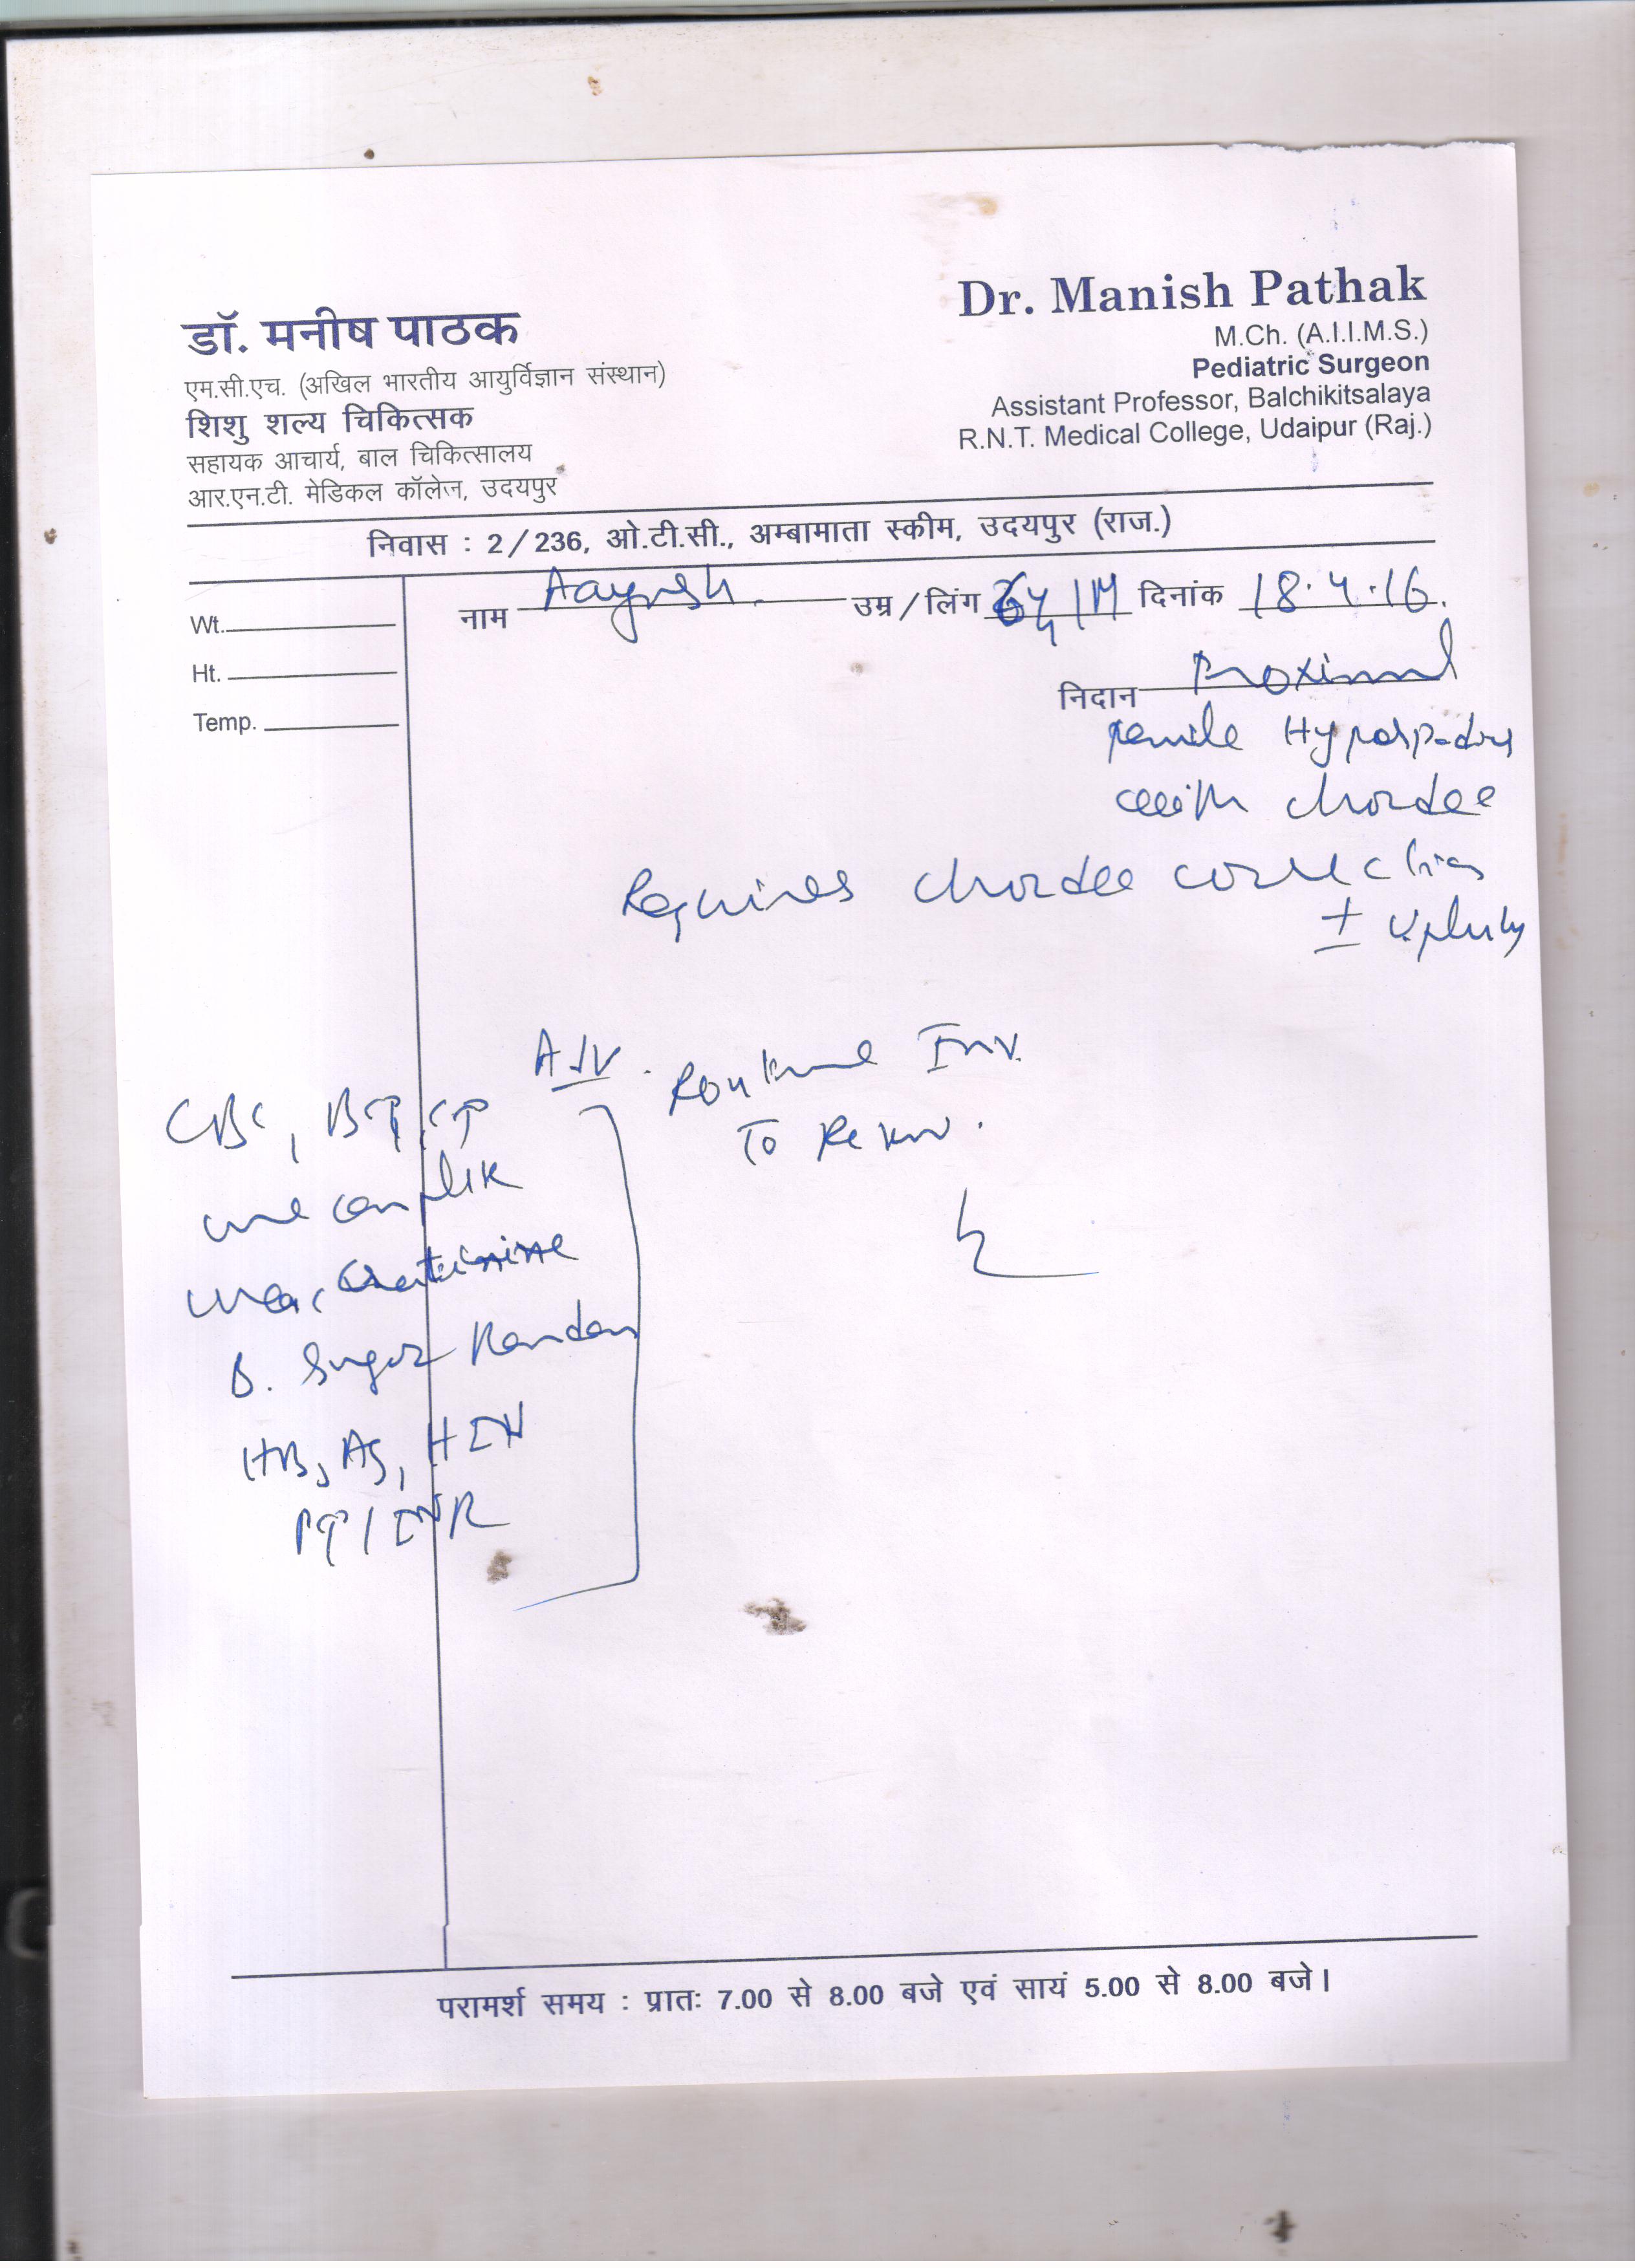 डॉ. मनीष पाठक
एम.सी.एच. (अखिल भारतीय आयुर्विज्ञान संस्थान)
शिशु शल्य चिकित्सक
सहायक आचार्य, बाल चिकित्सालय
आर.एन.टी. मेडिकल कॉलेज, उदयपुर
Dr. Manish Pathak
M.Ch. (A.I.I.M.S.)
Pediatric Surgeon
Assistant Professor, Balchikitsalaya
R.N.T. Medical College, Udaipur (Raj.)
निवास : 2/236, ओ.टी.सी., अम्बामाता स्कीम, उदयपुर (राज.)
Wt.
Ht.
Temp.
नाम Aayush उम्र/लिंग /M दिनांक 18.4.16.
निदान Proximal
penile Hypospadias
with chordee
Requires chordee correction
±
Adv. Routine Inv.
To Review.
CBC, BT, CT
urine complete
urea, Creatinine
B. Sugar Random
HBsAg, HIV
PT/INR
परामर्श समय : प्रातः 7.00 से 8.00 बजे एवं सायं 5.00 से 8.00 बजे।